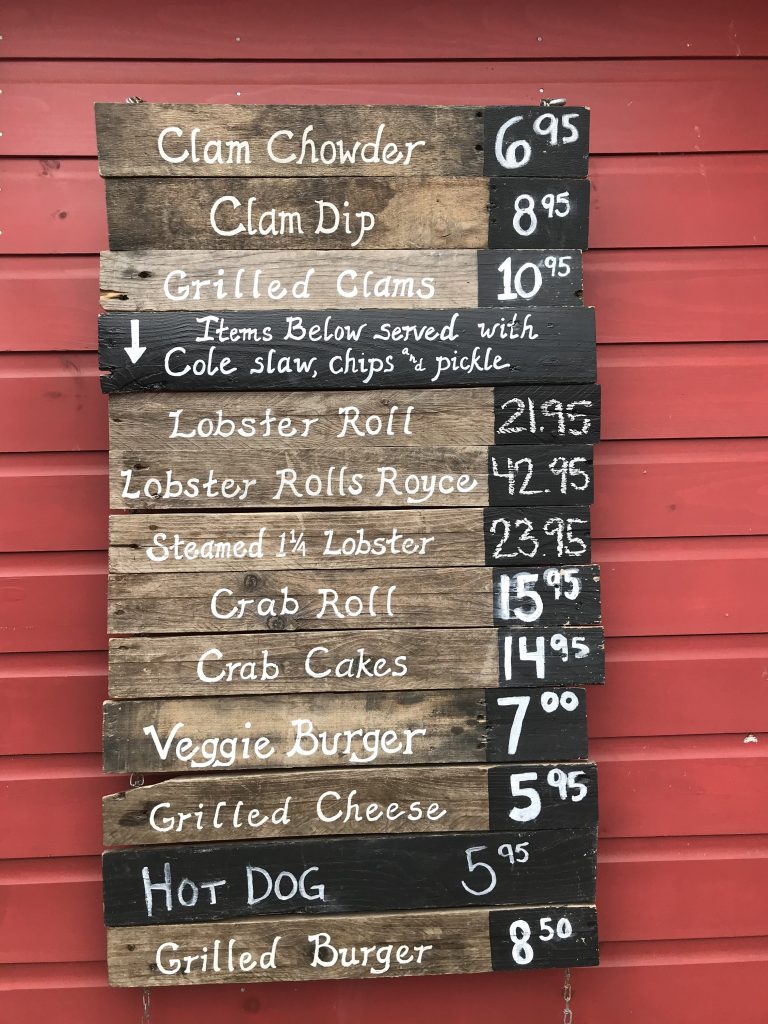 Clam Chowder 6.95
Clam Dip 8.95
Grilled Clams 10.95
↓ Items Below served with
Cole slaw, chips and pickle
Lobster Roll 21.95
Lobster Rolls Royce 42.95
Steamed 1¼ Lobster 23.95
Crab Roll 15.95
Crab Cakes 14.95
Veggie Burger 7.00
Grilled Cheese 5.95
HOT DOG 5.95
Grilled Burger 8.50